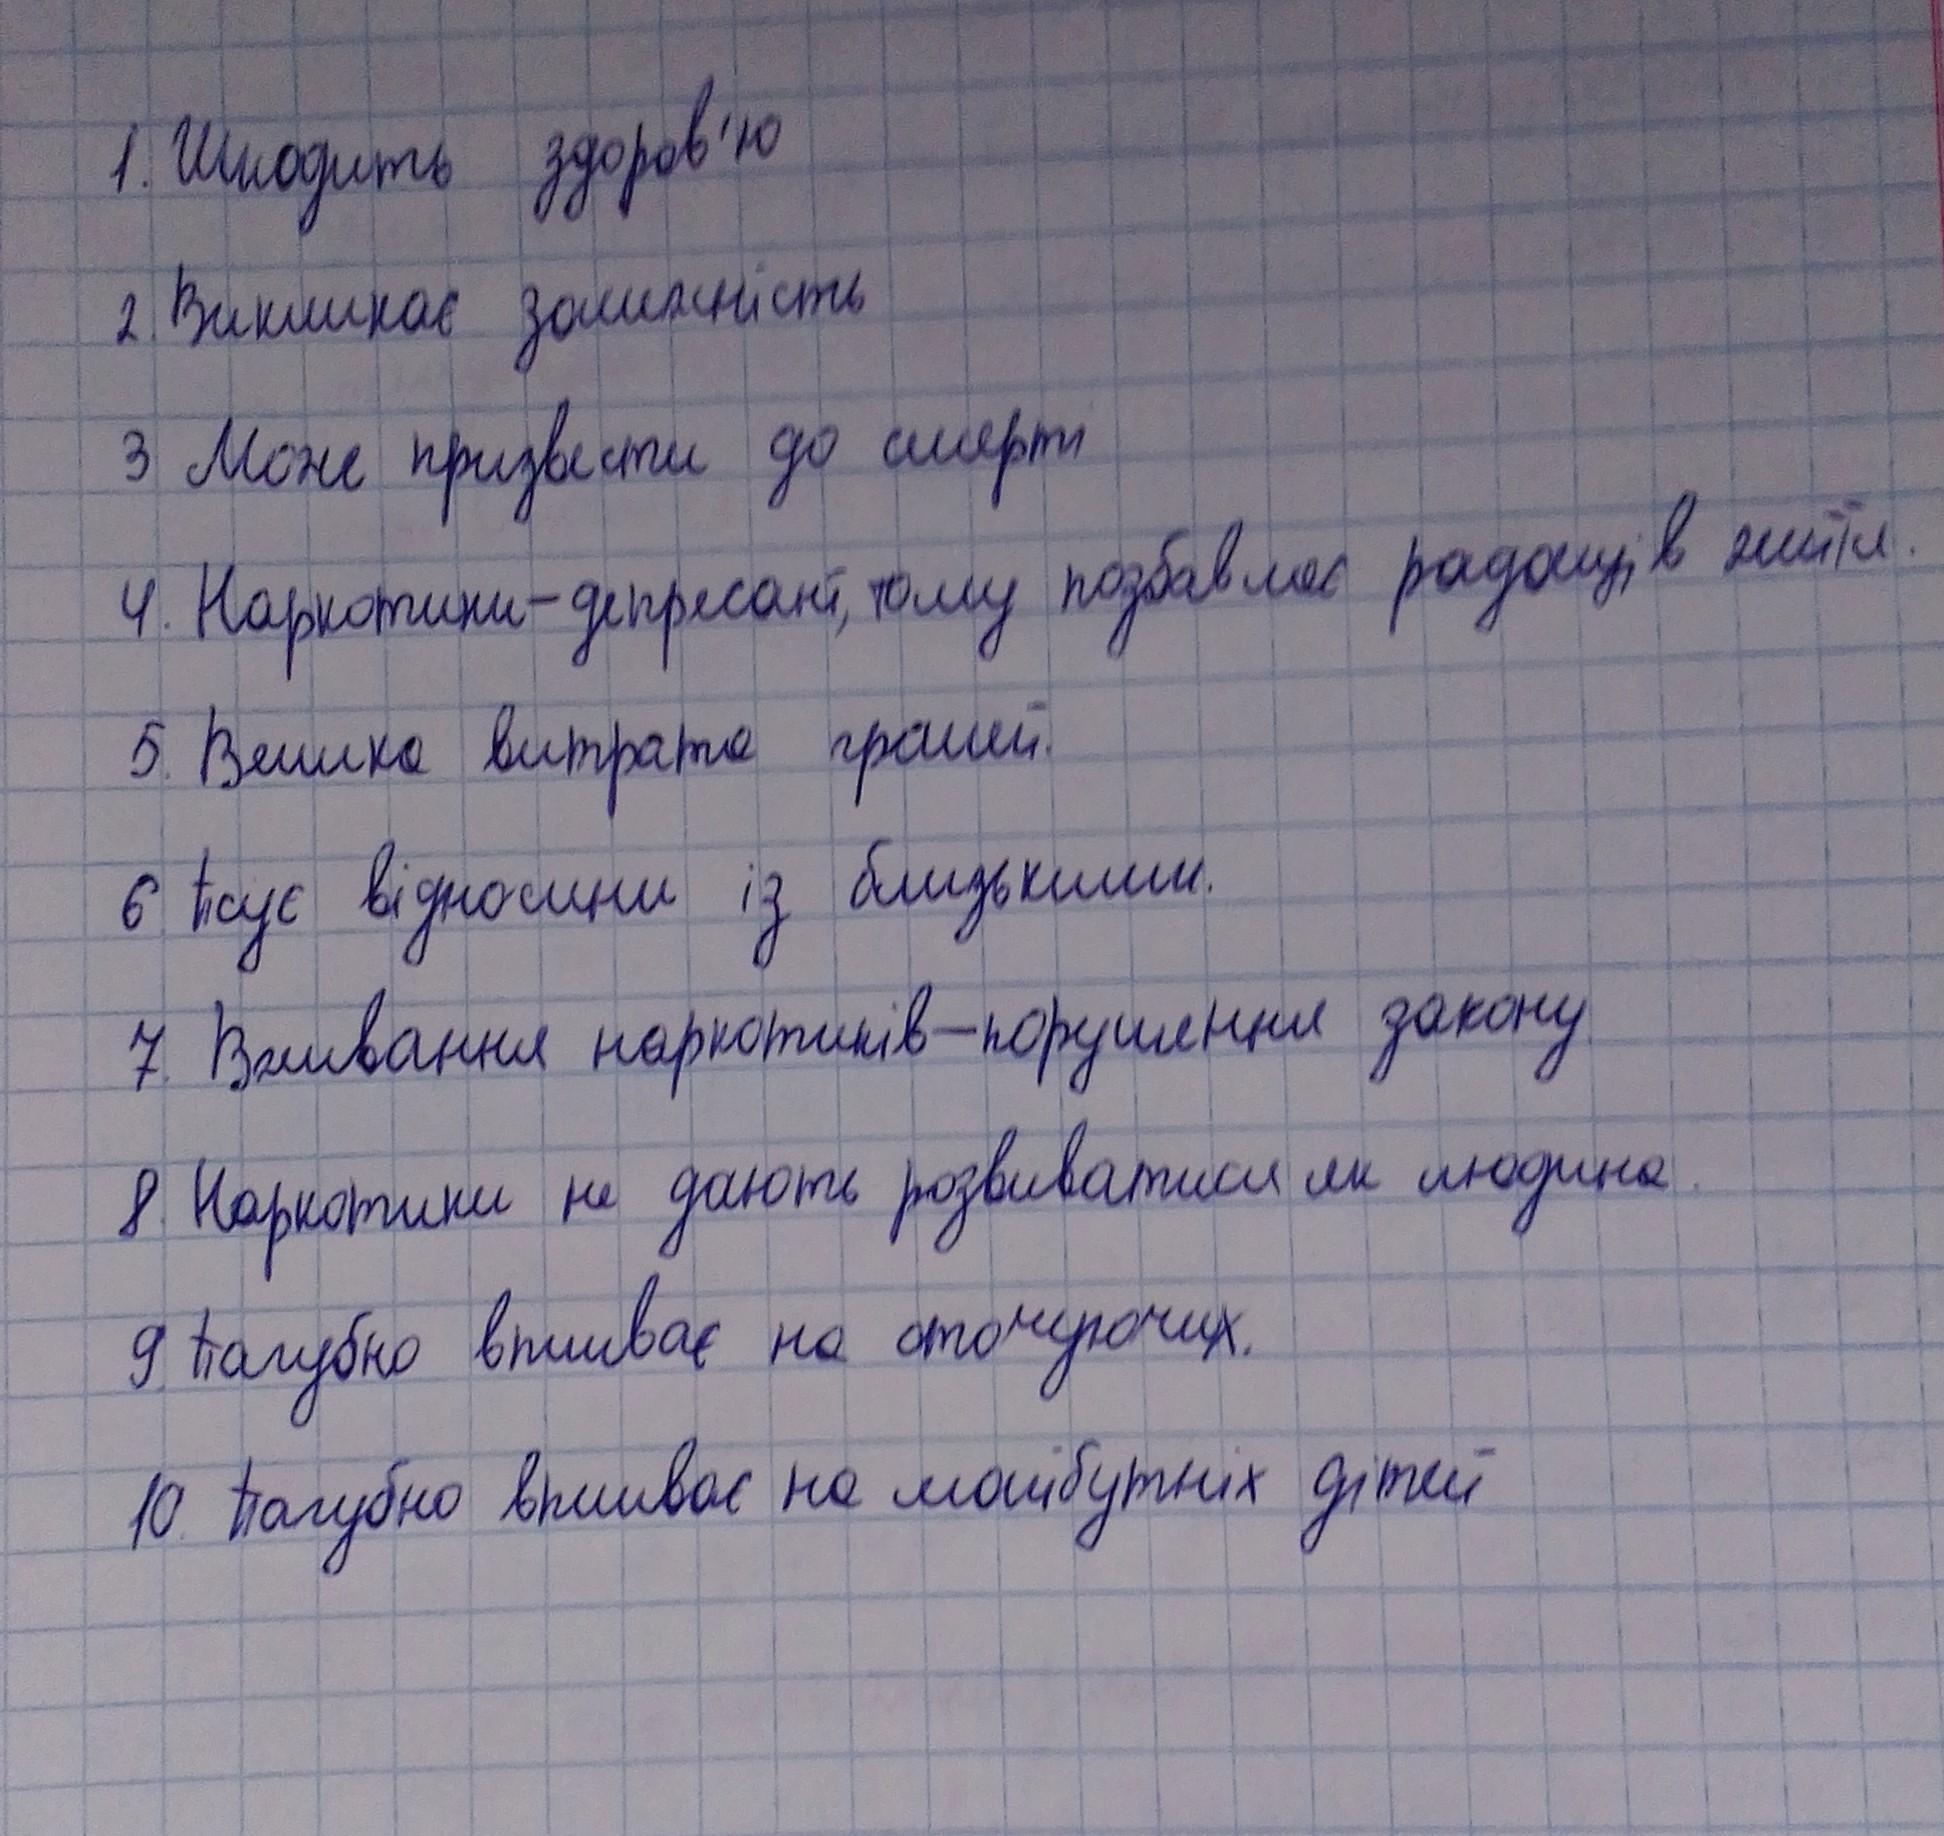 1. Шкодить здоров'ю
2. Викликає залижність
3 Може призвести до смерті
4. Наркотики-депресант, тому позбавляє радощів життя.
5. Велика витрата грошей.
6 Псує відносини із близькими.
7. Вживання наркотиків-порушення закону
8. Наркотики не дають розвиватися як людина.
9. Пагубно впливає на оточуючих.
10. Пагубно впливає на майбутніх дітей